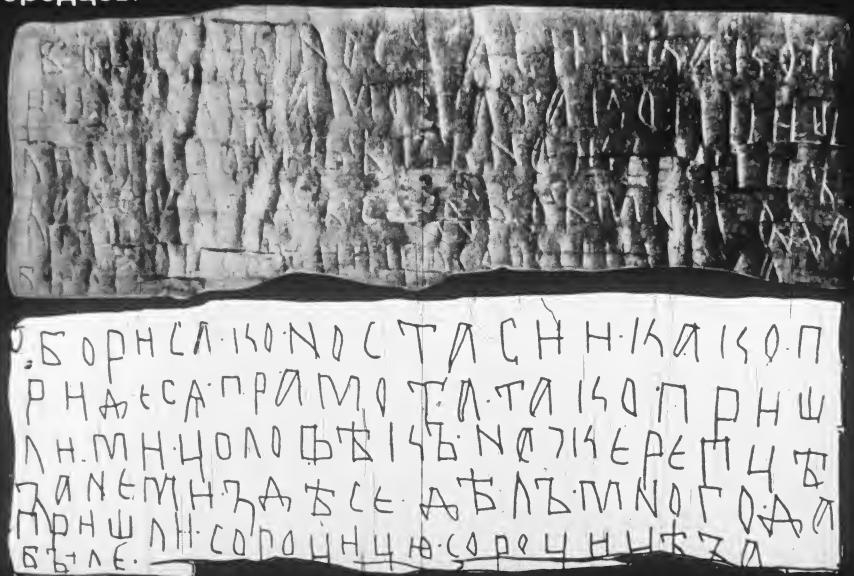 Ѿ·БОРИСА·КО·NОСТАСИИ·КАКО·П
РИДЕСА·ПРАМОТА·ТАКО·ПРИШ
ЛИ·МИ·ЦОЛОВѢКЪ·NА ЖЕРЕПЦѢ
ЗАNЕ МИ·ЗДѢСЕ·ДѢЛЪ·МNОГО·ДА
ПРИШЛИ·СОРОЦИЦЮ·СОРОЦИЦѢ ЗА
БЪІЛЕ·